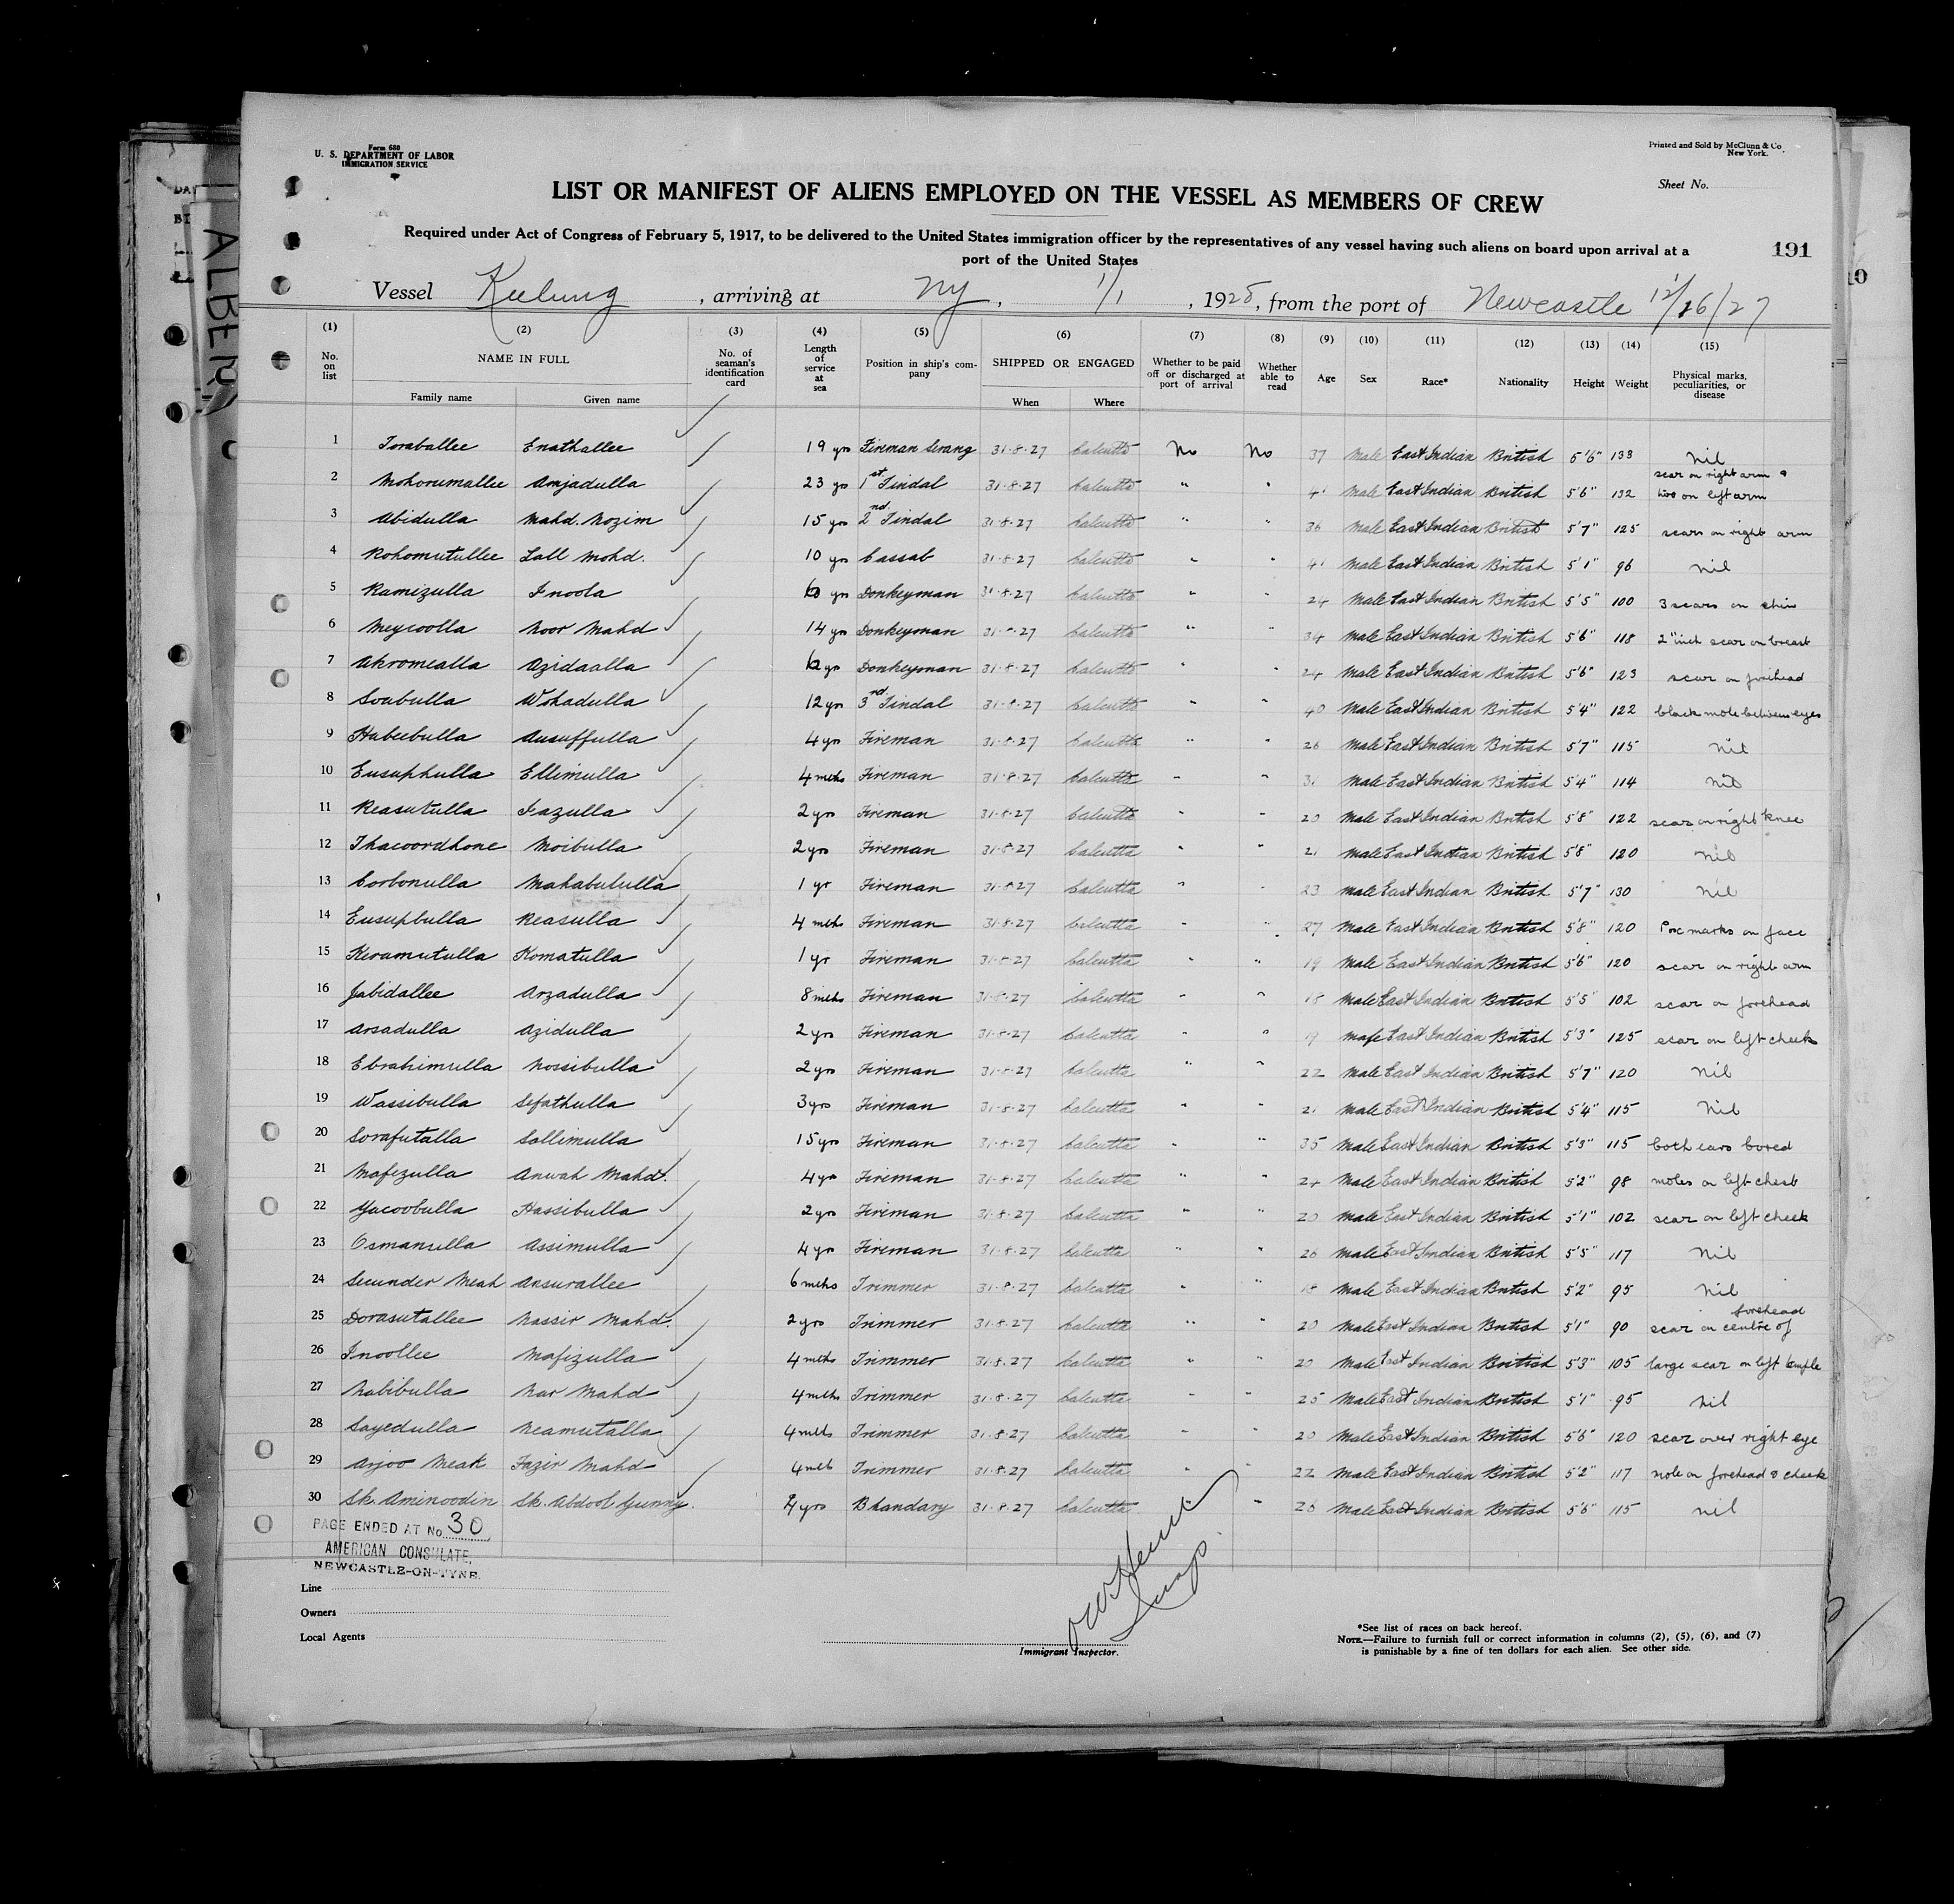 Form 680
U. S. DEPARTMENT OF LABOR
IMMIGRATION SERVICE
Printed and Sold by McClunn & Co
New York.
Sheet No.
LIST OR MANIFEST OF ALIENS EMPLOYED ON THE VESSEL AS MEMBERS OF CREW
Required under Act of Congress of February 5, 1917, to be delivered to the United States immigration officer by the representatives of any vessel having such aliens on board upon arrival at a
port of the United States
191
Vessel Keelung , arriving at NY , 1/1 , 1928, from the port of Newcastle 12/16/27
(1) (2) (3) (4) (5) (6) (7) (8) (9) (10) (11) (12) (13) (14) (15)
No. on list NAME IN FULL No. of seaman's identification card Length of service at sea Position in ship's company SHIPPED OR ENGAGED Whether to be paid off or discharged at port of arrival Whether able to read Age Sex Race* Nationality Height Weight Physical marks, peculiarities, or disease
Family name Given name When Where
1 Toraballee Enathallee 19 yrs Fireman Serang 31-8-27 Calcutta No No 37 Male East Indian British 5'6" 133 nil
2 Mohorumallee Amjadulla 23 yrs 1st Tindal 31-8-27 Calcutta " " 41 Male East Indian British 5'6" 132 scar on right arm & two on left arm
3 Abidulla Mahd. Nozim 15 yrs 2nd Tindal 31-8-27 Calcutta " " 36 Male East Indian British 5'7" 125 scars on right arm
4 Rohomutullee Lall Mohd. 10 yrs Cassab 31-8-27 Calcutta " " 41 Male East Indian British 5'1" 96 nil
5 Ramizulla Inoola yrs Donkeyman 31-8-27 Calcutta " " 24 Male East Indian British 5'5" 100 3 scars on shin
6 Meycoolla Noor Mahd 14 yrs Donkeyman 31-8-27 Calcutta " " 34 Male East Indian British 5'6" 118 2" inch scar on breast
7 Akromealla Azidaalla yrs Donkeyman 31-8-27 Calcutta " " 24 Male East Indian British 5'6" 123 scar on forehead
8 Soabulla Wohadulla 12 yrs 3rd Tindal 31-8-27 Calcutta " " 40 Male East Indian British 5'4" 122 black mole between eyes
9 Habeebulla Ausuffulla 4 yrs Fireman 31-8-27 Calcutta " " 26 Male East Indian British 5'7" 115 nil
10 Eusuphulla Ellimulla 4 mths Fireman 31-8-27 Calcutta " " 31 Male East Indian British 5'4" 114 nil
11 Reasutulla Fazulla 2 yrs Fireman 31-8-27 Calcutta " " 20 Male East Indian British 5'8" 122 scar on right knee
12 Thacoordhone Moibulla 2 yrs Fireman 31-8-27 Calcutta " " 21 Male East Indian British 5'8" 120 nil
13 Corbonulla Mahabutulla 1 yr Fireman 31-8-27 Calcutta " " 23 Male East Indian British 5'7" 130 nil
14 Eusupbulla Reasulla 4 mths Fireman 31-8-27 Calcutta " " 27 Male East Indian British 5'8" 120 Pox marks on face
15 Keramutulla Komatulla 1 yr Fireman 31-8-27 Calcutta " " 19 Male East Indian British 5'6" 120 scar on right arm
16 Jabidallee Arzadulla 8 mths Fireman 31-8-27 Calcutta " " 18 Male East Indian British 5'5" 102 scar on forehead
17 Arsadulla Azidulla 2 yrs Fireman 31-8-27 Calcutta " " 19 Male East Indian British 5'3" 125 scar on left cheek
18 Ebrahimulla Nossibulla 2 yrs Fireman 31-8-27 Calcutta " " 22 Male East Indian British 5'7" 120 nil
19 Wassibulla Sefathulla 3 yrs Fireman 31-8-27 Calcutta " " 21 Male East Indian British 5'4" 115 nil
20 Sorafutalla Sallimulla 15 yrs Fireman 31-8-27 Calcutta " " 35 Male East Indian British 5'3" 115 both ears bored
21 Mafezulla Anwah Mahd. 4 yrs Fireman 31-8-27 Calcutta " " 24 Male East Indian British 5'2" 98 moles on left chest
22 Yacoobulla Hassibulla 2 yrs Fireman 31-8-27 Calcutta " " 20 Male East Indian British 5'1" 102 scar on left cheek
23 Osmanulla Assimulla 4 yrs Fireman 31-8-27 Calcutta " " 26 Male East Indian British 5'5" 117 nil
24 Secunder Meah Ansurallee 6 mths Trimmer 31-8-27 Calcutta " " 18 Male East Indian British 5'2" 95 nil
25 Dorasutallee Nassir Mahd. 2 yrs Trimmer 31-8-27 Calcutta " " 20 Male East Indian British 5'1" 90 scar on centre of forehead
26 Inoollee Mafizulla 4 mths Trimmer 31-8-27 Calcutta " " 20 Male East Indian British 5'3" 105 large scar on left temple
27 Nabibulla Nar Mahd 4 mths Trimmer 31-8-27 Calcutta " " 25 Male East Indian British 5'1" 95 nil
28 Sayedulla Neamutalla 4 mths Trimmer 31-8-27 Calcutta " " 20 Male East Indian British 5'6" 120 scar over right eye
29 Arjoo Meah Fazir Mahd 4 mth Trimmer 31-8-27 Calcutta " " 22 Male East Indian British 5'2" 117 mole on forehead & cheek
30 Sk. Aminoodin Sk. Abdool Gunny. 4 yrs Bhandary 31-8-27 Calcutta " 26 Male East Indian British 5'6" 115 nil
PAGE ENDED AT No. 30
AMERICAN CONSULATE,
NEWCASTLE-ON-TYNE.
Line
Owners
Local Agents
Immigrant Inspector.
*See list of races on back hereof.
NOTE.—Failure to furnish full or correct information in columns (2), (5), (6), and (7)
is punishable by a fine of ten dollars for each alien. See other side.